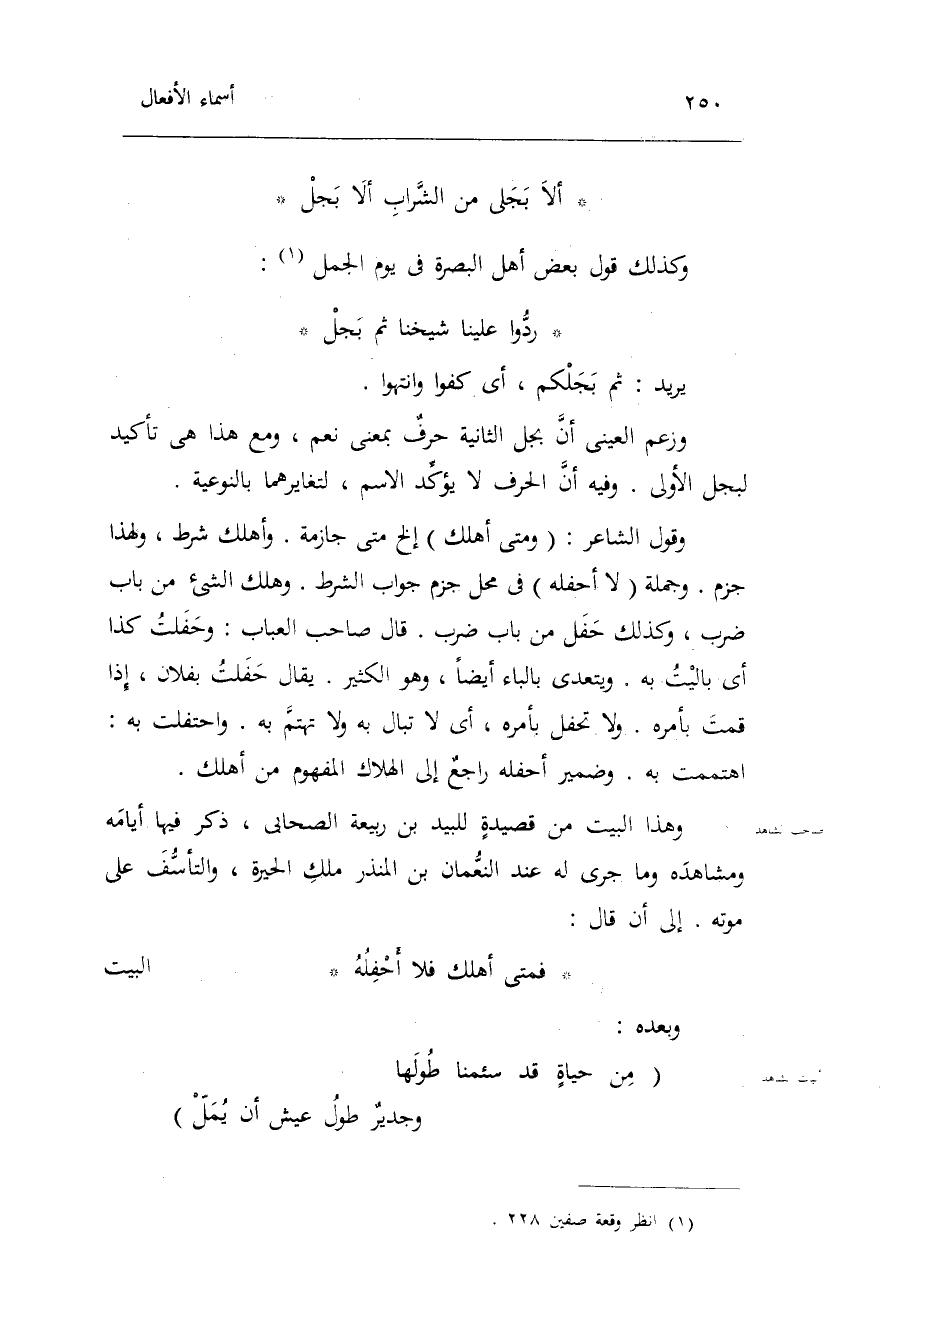 ٢٥٠ أسماء الأفعال
* ألاَ بَجَلى من الشَّرابِ ألَا بَجلْ *
وكذلك قول بعض أهل البصرة فى يوم الجمل (١) :
* ردُّوا علينا شيخنا ثم بَجلْ *
يريد : ثم بَجَلْكم ، أى كفوا وانتهوا .
وزعم العينى أنَّ بجل الثانية حرفٌ بمعنى نعم ، ومع هذا هى تأكيد
لبجل الأولى . وفيه أنَّ الحرف لا يؤكِّد الاسم ، لتغايرهما بالنوعية .
وقول الشاعر : ( ومتى أهلك ) إلخ متى جازمة . وأهلك شرط ، ولهذا
جزم . وجملة ( لا أحفله ) فى محل جزم جواب الشرط . وهلك الشئ من باب
ضرب ، وكذلك حَفَل من باب ضرب . قال صاحب العباب : وحَفَلتُ كذا
أى باليْتُ به . ويتعدى بالباء أيضاً ، وهو الكثير . يقال حَفَلتُ بفلان ، إذا
قمتَ بأمره . ولا تحفل بأمره ، أى لا تبال به ولا تهتمَّ به . واحتفلت به :
اهتممت به . وضمير أحفله راجعٌ إلى الهلاك المفهوم من أهلك .
وهذا البيت من قصيدةٍ للبيد بن ربيعة الصحابى ، ذكر فيها أيامَه
صاحب الشاهد
ومشاهدَه وما جرى له عند النعُّمان بن المنذر ملكِ الحيرة ، والتأسُّفَ على
موته . إلى أن قال :
* فمتى أهلك فلا أَحْفِلُهُ * البيت
وبعده :
( مِن حياةٍ قد سئمنا طُولَها
أبيات الشاهد
وجديرٌ طولُ عيش أن يُمَلّْ )
(١) انظر وقعة صفين ٢٢٨ .